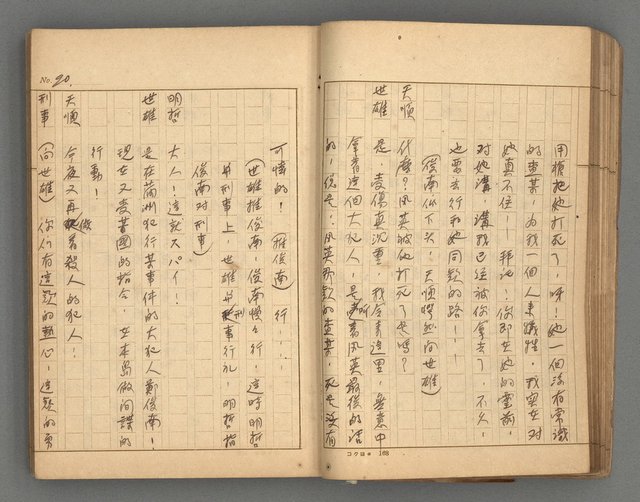 用槍把她打死了,呀!她一個沒有常識
的查某,為我一個人來犧牲,我實在对
她真不住!拜託!你即在她的靈前,
对她講,講我已経被你拿去了,不久,
也要去行和她同款的路!!!
(俊南低下头,天順愕然向世雄)
天順 什麼?風英被他打死了是嗎?
世雄 是,麦傷真沉重,我今来這里,無意中
拿着這個大犯人,是風英最後的話
的!但是!風英那款的查某,死也沒有
可憐的!(推俊南)行...
(世雄推俊南,俊南慢々行,這時明哲
与刑事上,世雄与刑事行礼,明哲指
俊南对刑事)
明哲 大人!這就スパイ!
世雄 是在滿洲犯行某事件的大犯人鄭俊南!
現在又麦某國的指令,在本島做间諜的
行動!
天順 今夜又再做着殺人的犯人!
刑事 (向世雄)你们有這款的熱心,這款的勇
No. 20.
コクヨ 168